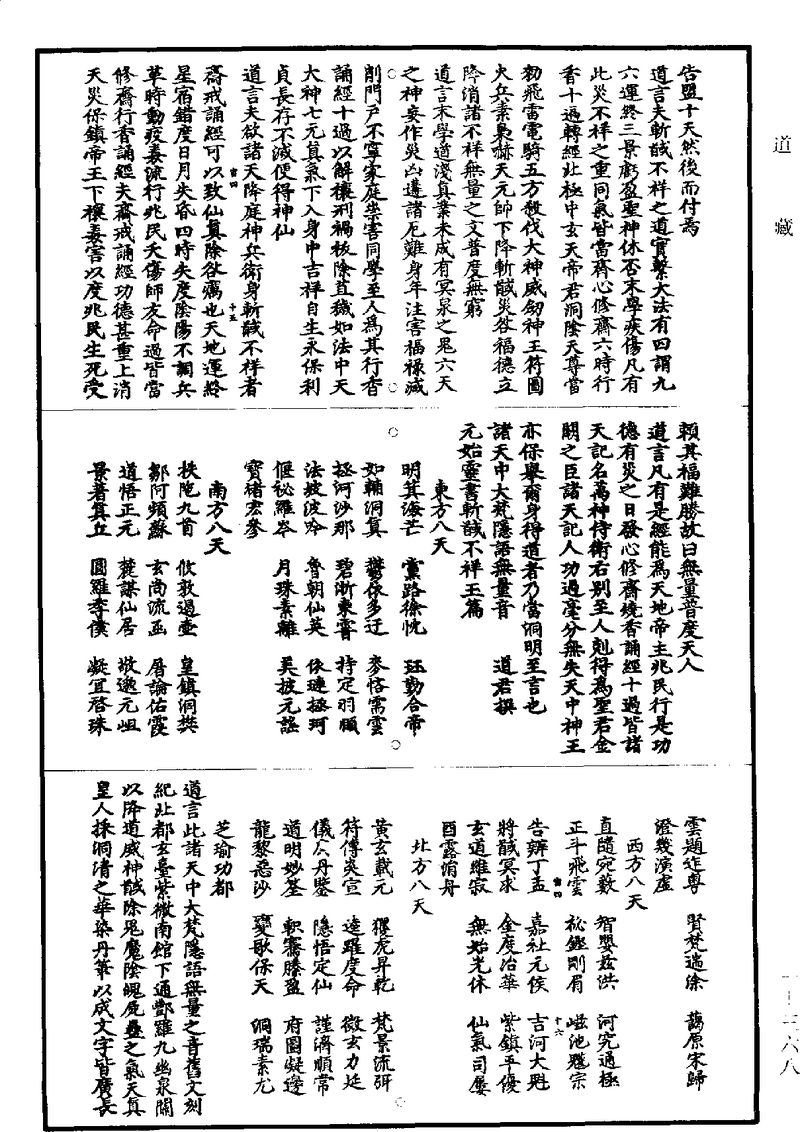 道藏
告盟十天然後而付焉
道言夫斬馘不祥之道實繫大法有四謂九
六運終三景虧盈聖神休否末學疾傷凡有
此災不祥之重同氣皆當齊心修齋六時行
香十遍轉經北極中玄天帝君洞陰天尊當
勑飛雷電騎五方殺伐大神威劒神王符圖
火兵素梟嚇天元帥下降斬馘災咎福德立
降消諸不祥無量之文普度無窮
道言末學道淺真業未成有冥泉之鬼六天
之神妄作災凶遭諸厄難身年注害福祿減
削門戶不寧家庭祟害同學至人爲其行香
誦經十過以解禳刑禍祓除苴穢如法中天
大神七元真氣下入身中吉祥自生永保利
貞長存不滅便得神仙
道言夫欲諸天降庭神兵衛身斬馘不祥者
齋戒誦經可以致仙真除欲癘也天地運終
星宿錯度日月失昏四時失度陰陽不調兵
革時動疫毒流行兆民夭傷師友命過皆當
修齋行香誦經夫齋戒誦經功德甚重上消
天災保鎮帝王下禳毒害以度兆民生死受
賴其福難勝故曰無量普度天人
道言凡有是經能爲天地帝主兆民行是功
德有災之日發心修齋燒香誦經十過皆諸
天記名萬神侍衛右別至人剋得爲聖君金
闕之臣諸天記人功過毫分無失天中神王
亦保舉爾身得道者乃當洞明至言也
諸天中大梵隱語無量音 道君撰
元始靈書斬馘不祥王篇
東方八天
明箕海芒 黨路徐忱 珏勤合帝
如輔洞真 鬱依多迂 麥恪霐雲
拯河沙那 碧浙東霄 持定羽順
法披波吟 魯朝仙英 依璉拯珂
偃祕羅岑 月珠素離 吴披元謠
寶楮宏參
南方八天
秩陁九首 攸敦過壺 皇鎮洞樊
鄒阿頻蘇 玄尚流函 唇諭佑霞
道悟正元 蓰謀仙居 敬邈元岨
景著真立 圓羅李僕 凝宜啓珠
雲題迮粤 賢梵遄徐 藹原宋歸
澄幾演虛
西方八天
直隨宛藪 智嬰兹洪 河究通極
正斗飛雲 祕鏗剛眉 嵫池蹷宗
告辦丁孟 嘉祉元侯 吉河大魁
將馘冥求 金度冶華 紫鎮平優
玄道維寂 無始光休 仙氣司屢
酉露消舟
北方八天
黄玄載元 玃虎昇乾 梵景流研
符傳炎宣 達羅度命 微玄力延
儀仌丹鑒 隱悟定仙 謹濟順常
道明妙荃 軹騫勝盈 府圖凝邊
龍黎惡沙 變歌保天 洞瑞素尤
芝瑜功都
道言此諸天中大梵隱語無量之音舊文刻
紀北都玄臺紫微南館下通酆羅九幽泉關
以降道威神馘除鬼魔陰魄屍蠱之氣天真
皇人採洞清之華染丹筆以成文字皆廣長